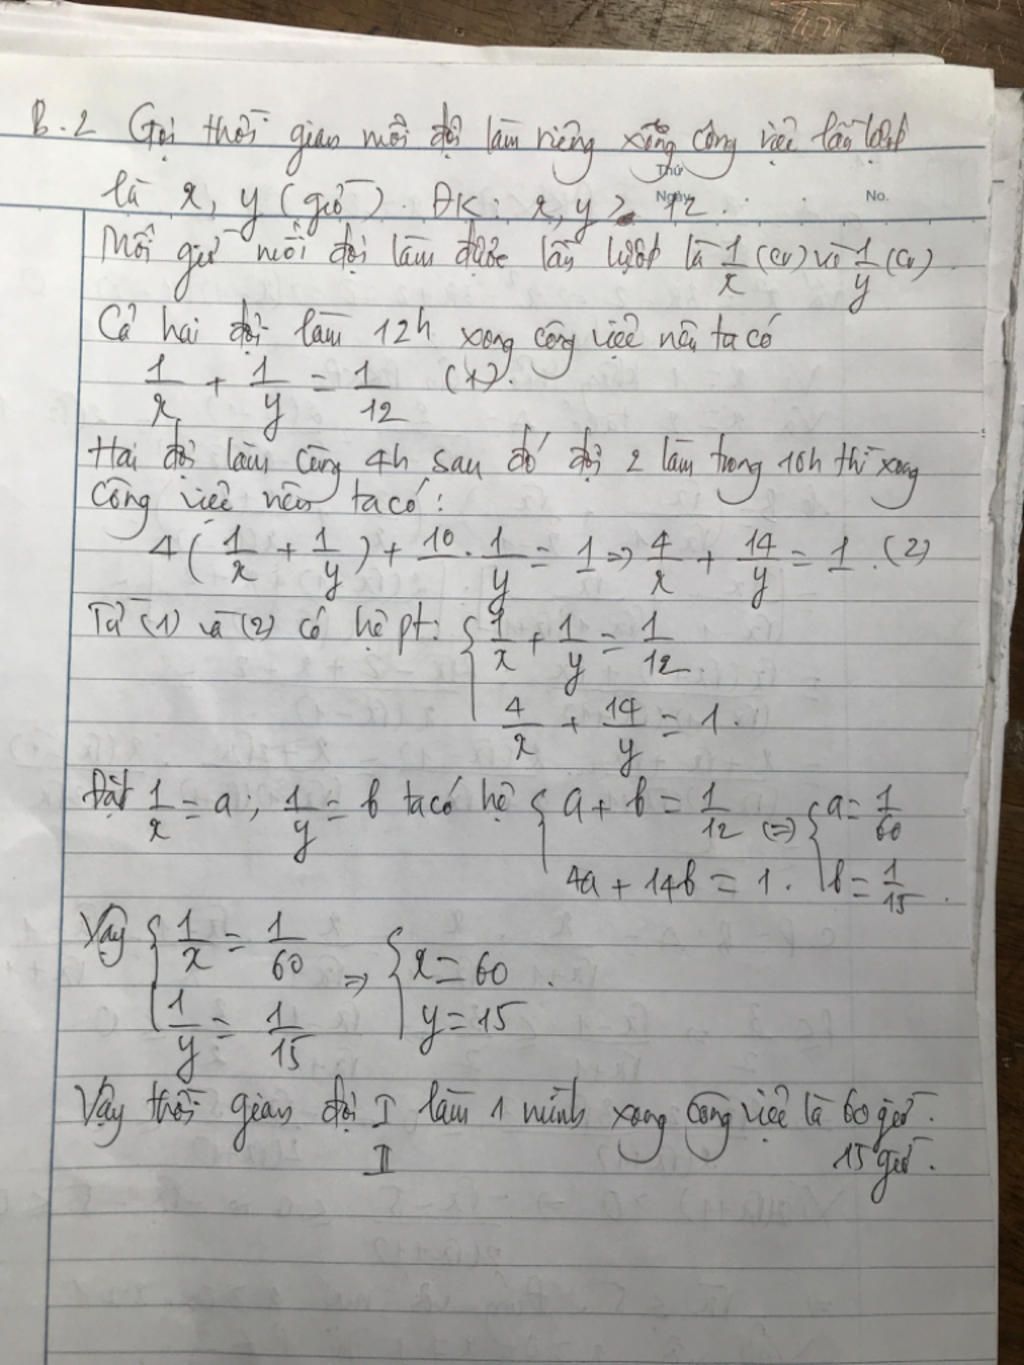 B.2 Gọi thời gian mỗi đội làm riêng xong công việc lần lượt
Thứ
là x, y (giờ). ĐK: x, y > 12.
Ngày
No.
Mỗi giờ mỗi đội làm được lần lượt là 1/x (cv) và 1/y (cv).
Cả hai đội làm 12h xong công việc nên ta có
1/x + 1/y = 1/12 (1).
Hai đội làm cùng 4h sau đó đội 2 làm trong 10h thì xong
công việc nên ta có:
4(1/x + 1/y) + 10 . 1/y = 1 => 4/x + 14/y = 1. (2)
Từ (1) và (2) có hệ pt: { 1/x + 1/y = 1/12.
4/x + 14/y = 1.
Đặt 1/x = a; 1/y = b ta có hệ { a + b = 1/12 <=> { a = 1/60
4a + 14b = 1. b = 1/15.
Vậy { 1/x = 1/60 => { x = 60.
1/y = 1/15 y = 15
Vậy thời gian đội I làm 1 mình xong công việc là 60 giờ.
II 15 giờ.